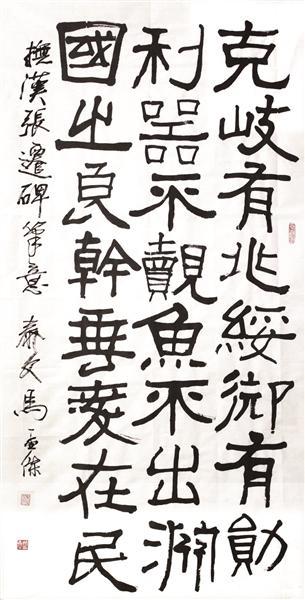 克岐有兆綏御有勛
利器不覿魚不出淵
國之良幹垂愛在民
撫漢張遷碑筆意 馬